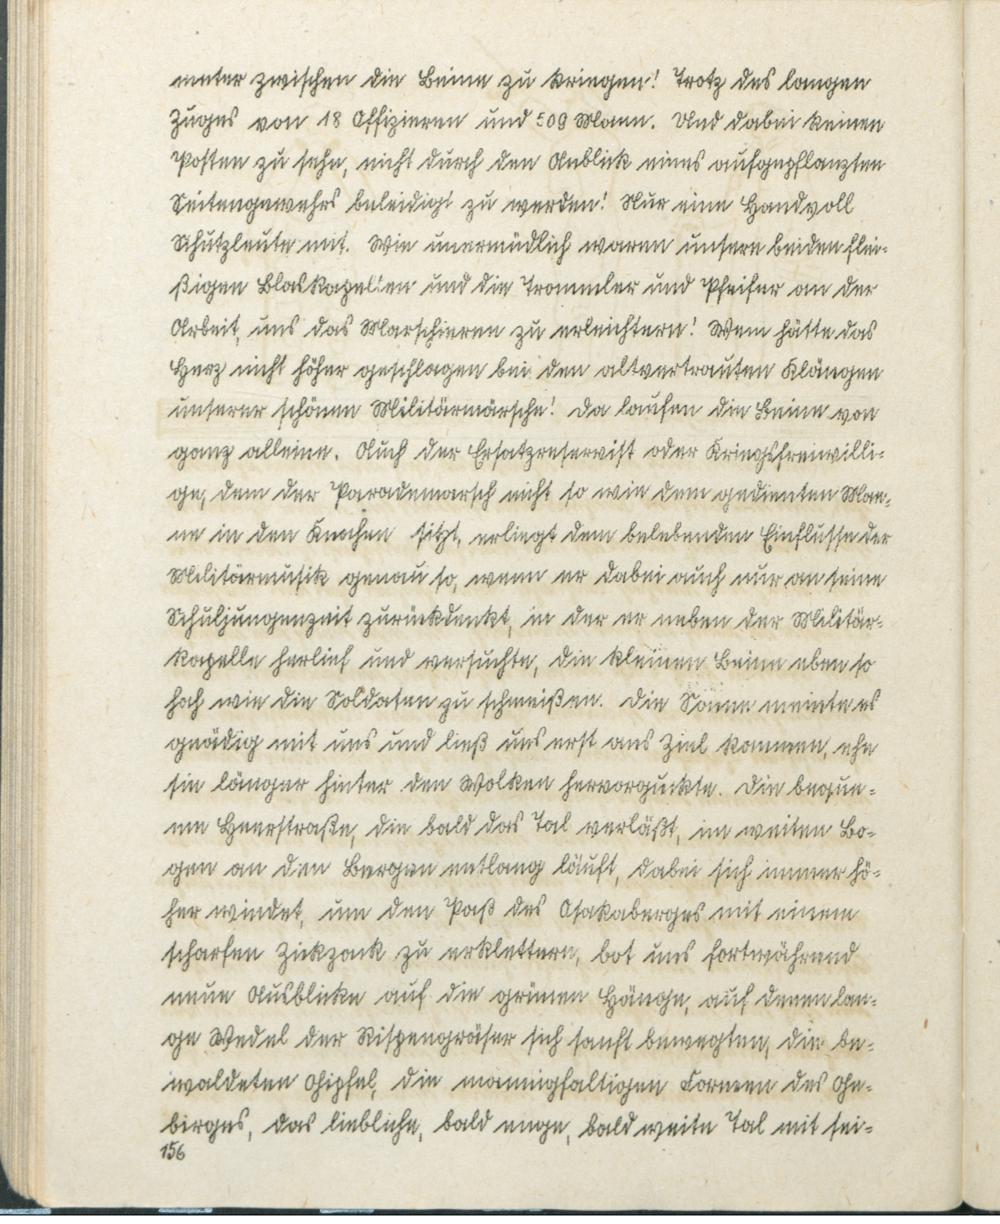 unter zwischen die Beine zu kriegen! Trotz des langen
Zuges von 18 Offizieren und 509 Mann. Und dabei keinen
Posten zu sehn, nicht durch den Anblick eines aufgepflanzten
Seitengewehrs beleidigt zu werden! Nur eine Handvoll
Schutzleute mit. Wie unermüdlich waren unsere beiden flei-
ßigen Blaskapellen und die Trommler und Pfeifer an der
Arbeit, uns das Marschieren zu erleichtern! Wem hätte das
Herz nicht höher geschlagen bei den altvertrauten Klängen
unserer schönen Militärmärsche! Da laufen die Beine von
ganz alleine. Auch der Ersatzreservist oder Kriegsfreiwilli-
ge, dem der Parademarsch nicht so wie dem gedienten Man-
ne in den Knochen sitzt, erliegt dem belebenden Einflusse der
Militärmusik genau so, wenn er dabei auch nur an seine
Schuljungenzeit zurückdenkt, in der er neben der Militär-
kapelle herlief und versuchte, die kleinen Beine eben so
hoch wie die Soldaten zu schmeißen. Die Sonne meinte es
gnädig mit uns und ließ uns erst ans Ziel kommen, ehe
sie länger hinter den Wolken hervorguckte. Die beque-
me Heerstraße, die bald das Tal verläßt, im weiten Bo-
gen an den Bergen entlang läuft, dabei sich immer hö-
her windet, um den Paß des Osakaberges mit einem
scharfen Zickzack zu erklettern, bot uns fortwährend
neue Ausblicke auf die grünen Hänge, auf denen lan-
ge Wedel der Rispengräser sich sanft bewegten, die be-
waldeten Gipfel, die mannigfaltigen Formen des Ge-
birges, das liebliche, bald enge, bald weite Tal mit sei-
156